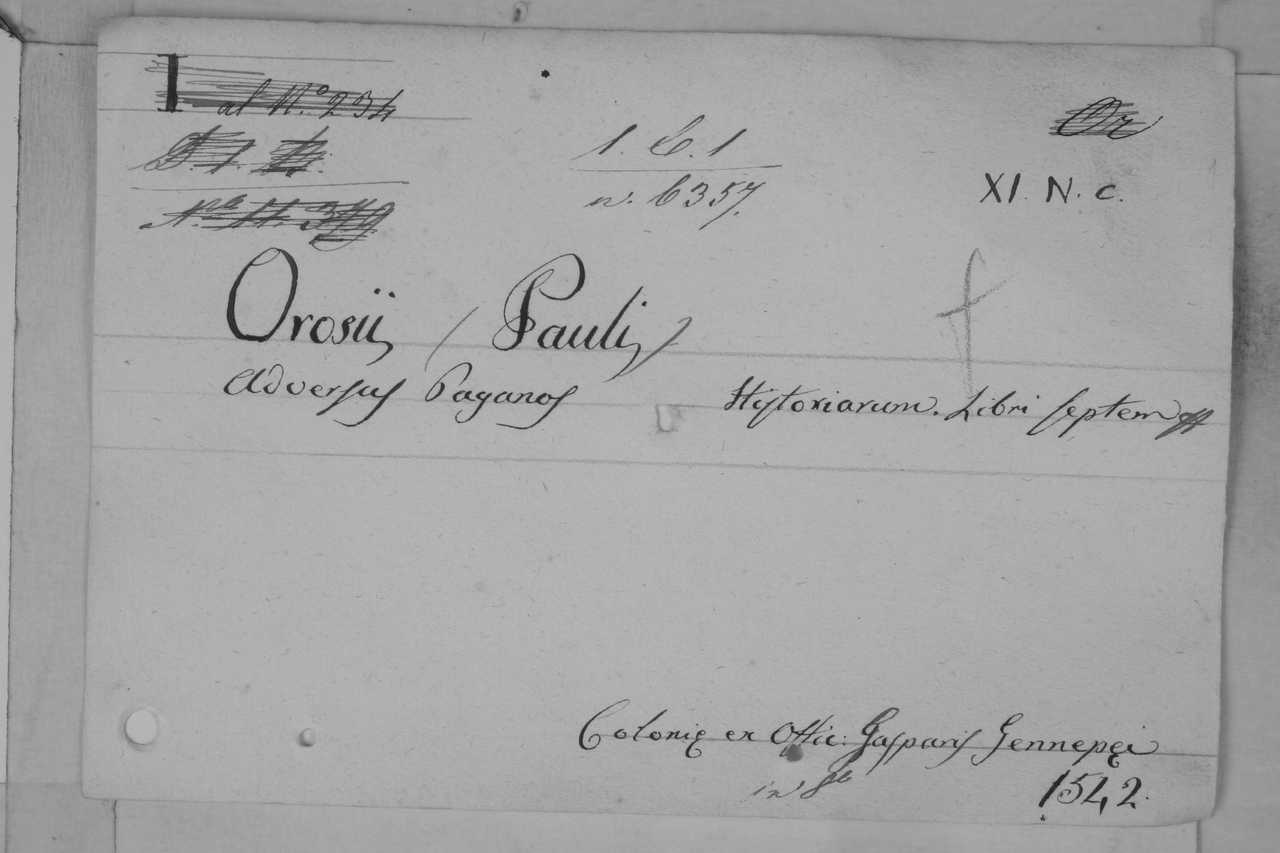 al N.º 234
Or
1. C. 1
XI. N. c.
n. 6357.
Orosii, (Pauli,)
Adversus Paganos Hystoriarum. Libri septem
Colonię ex Offic: Gasparis Gennepęi
in 8º
1542.